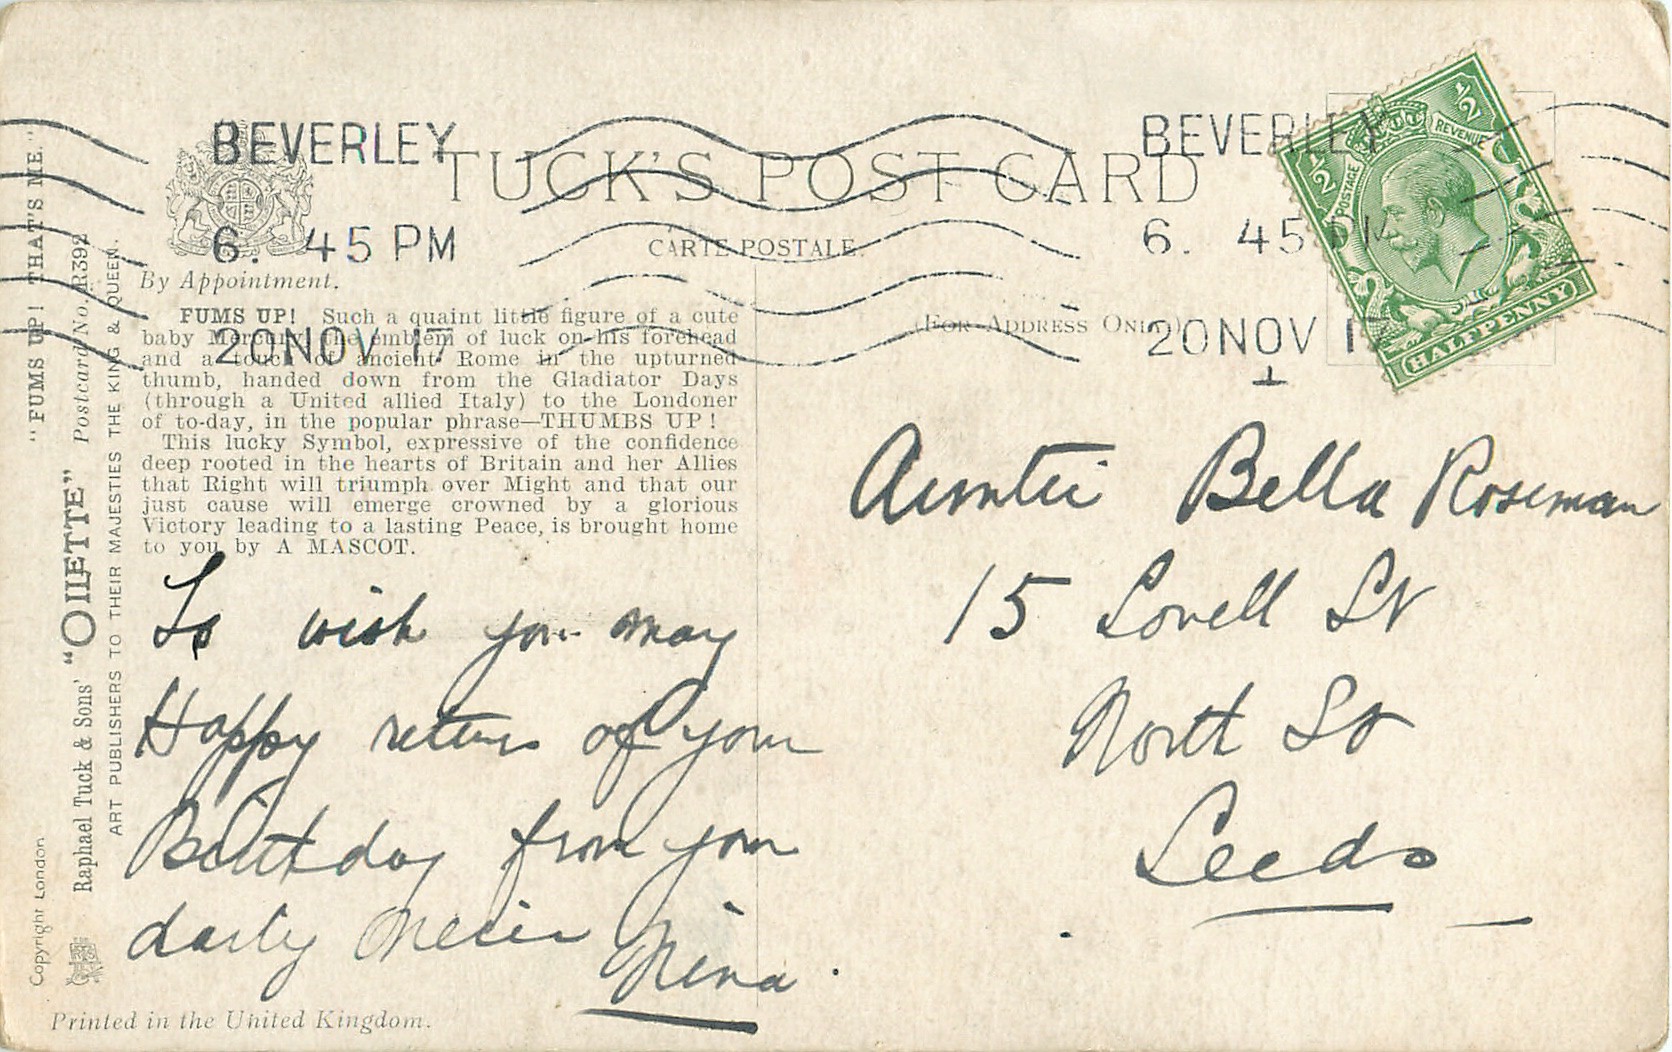 BEVERLEY
6. 45 PM
20 NOV 17
BEVERLEY
6. 45 PM
20 NOV 17
TUCK'S POST CARD
CARTE POSTALE.
(FOR ADDRESS ONLY)
By Appointment.
½
½
POSTAGE
REVENUE
HALFPENNY
FUMS UP! Such a quaint little figure of a cute
baby Mercury the emblem of luck on his forehead
and a touch of ancient Rome in the upturned
thumb, handed down from the Gladiator Days
(through a United allied Italy) to the Londoner
of to-day, in the popular phrase—THUMBS UP!
This lucky Symbol, expressive of the confidence
deep rooted in the hearts of Britain and her Allies
that Right will triumph over Might and that our
just cause will emerge crowned by a glorious
Victory leading to a lasting Peace, is brought home
to you by A MASCOT.
To wish you may
Happy returns of your
Birthday from your
Neice
Nina.
Auntie Bella Roseman
15 Lovell St
North St
Leeds
"FUMS UP! THAT'S ME."
Postcard No. R392
Raphael Tuck & Sons' "OILETTE"
ART PUBLISHERS TO THEIR MAJESTIES THE KING & QUEEN.
Copyright London.
Printed in the United Kingdom.